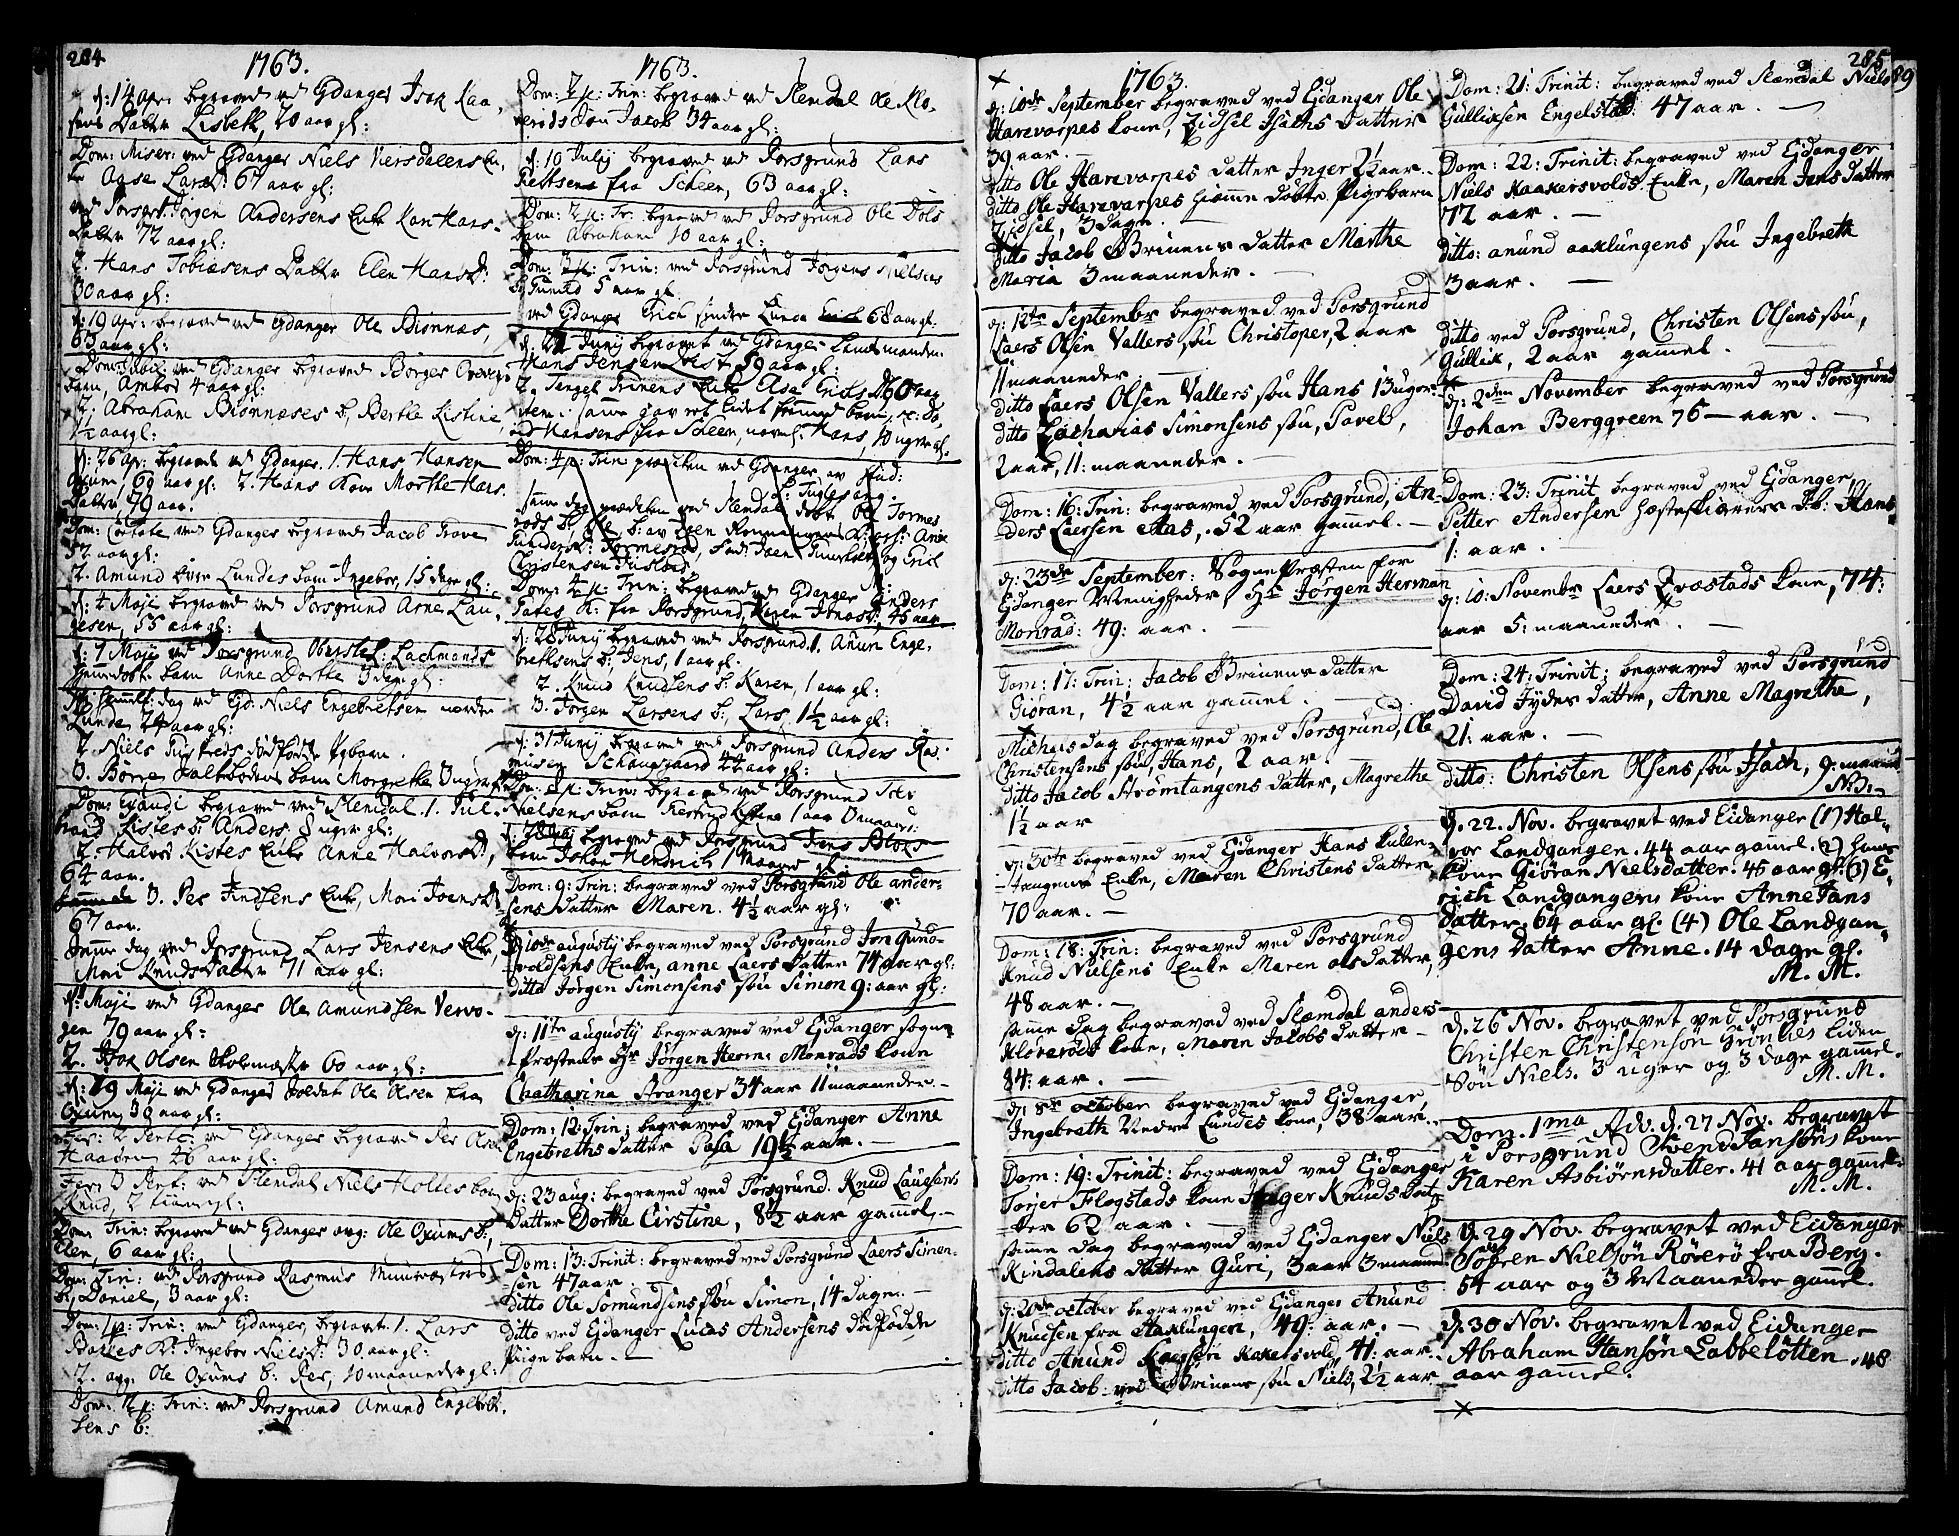 284
1763.
d: 14 Apr: begraved ved Eydanger Isak Kaa
sens Datter Lisbeth, 20 aar gl:
Dom: Miser: ved Eydanger Niels Versdalens En,
ke Aase Larsd: 67 aar gl:
ved Porsgr: Jørgen Andersens Enke Kari Hans-
Datter 72 aar gl:
2. Hans Tobiasens Datter Elen Hansd:
30 aar gl:
d: 19 Apr: begraved ved Eydanger Ole Biønnæs,
63 aar gl:
Dom: Jubil: ved Eydanger begraved Børges
barn, Ambor 4 aar gl:
2. Abraham Biønnæses b, Berthe Kistine,
1½ aar gl:
d: 26 Apr: begraved ved Eydanger 1. Hans Hansen
Oxum, 69 aar gl: 2. Hans Kone Morthe Hans
Datter 79 aar.
Dom: Cantate ved Eydanger begraved Jacob Trave
52 aar gl:
2. Amund Lundes barn Ingebor, 15 dage gl:
d: 4 Maji begraved ved Porsgrund Arne Lau-
gesen, 55 aar gl:
d: 7 Maji ved Porsgrund Oberstel: Lachmands
hiemmedøbt barn Anne Dorthe 3 dage gl:
dag ved Eyd: Niels Engebretsen nordre
Lunde 24 aar gl:
2. Niels dødfødt Pgbarn.
3. Børge Saltbodens barn Morgrethe 3 uger gl:
Dom: Exaudi begraved ved Slemdal. 1. Gul-
brand Kistes b: Anders 8 uger gl:
2. Halvor Kistes Enke Anne Halvorsd,
64 aar.
3. Per Findsens Enke, Mari Joensd:
67 aar.
Samme dag ved Porsgrund Lars Jensens Enke,
Mari Knuds Datter 71 aar gl:
d: Maji ved Eydanger Ole Amundsen Vervo-
gen 79 aar gl:
2. Isak Olsen Skolemester 60 aar gl:
d: 19 Maji ved Eydanger Soldat Ole Olsen fra
Oxum 30 aar gl:
Fer: 2 Pent: ved Eydanger begraved Per
Haaøen 46 aar gl:
Fer: 3 Pent: ved Slemdal Niels Holtes barn
Knud, 2 aar gl:
Dom: Trin: begraved ved Eydanger avg: Ole Oxums b:,
Elen, 6 aar gl:
Dom: Trin: ved Porsgrund Rasmus Muurmesters
b: Daniel, 3 aar gl:
Dom: 1 p: Trin: ved Eydanger begravet 1. Lars
Bakkes K: Ingebor Nielsd: 30 aar gl:
2. avg. Ole Oxums b: Per, 10 maaneder gl:
Dom: 1 p: Trin: ved Porsgrund Amund Engebret-
sens b:
1763.
Dom: 2 p: Trin: begraved ved Slemdal Ole Klo-
verøds Søn Jacob 34 aar gl:
d: 10 Junij begraved ved Porsgrund Lars
Pettersen fra Scheen, 63 aar gl:
Dom: 2 p: Tr: begraved ved Porsgrund Ole Dols
barn Abraham 10 aar gl:
Dom: 3 p: Trin: ved Porsgrund Jørgens Nielsens
b: Gunild 5 aar gl.
ved Eydanger Erich Lunde 68 aar gl:
d. 22 Junij begravet ved Eydanger Lensmanden
Hans Jensen Tvist 59 aar gl:
2. Tengel Trinens Enke Ase Erichsd: 60 aar,
Hansens fra Scheen, navnl: Hans, 10 uger gl.
Dom: 4 p: Trin: prædiken ved Eydanger av Stud:
L: Fuglesang.
samme dag prædiken ved Slemdal døbt Ole Tormes
røds b: Ole
Christensen
Dom: 4 p: Trin: begraved ved Eydanger Anders
K: fra Porsgrund, Karen Jonasd:, 45 aar
d: 28 Junij begraved ved Porsgrund 1. Anun Enge-
brethsens b: Jens, 1 aar gl.
2. Knud Knudsens b: Karen, 1 aar gl:
3. Jørgen Larsens b:, Lars, 1½ aar gl:
d: 31 Junij begraved ved Porsgrund Anders Ras-
musen Schaugaard 44 aar gl:
Dom: p: Trin: begraved ved Porsgrund Peter
Nielsens barn Kistine 1 aar 3 maaned.
d. 28 begraved ved Porsgrund Jens Bloks
barn Johan Hendrich 1 Maaned gl:
Dom: 9: Trin: begraved ved Porsgrund Ole ander-
sens datter Maren. 4½ aar gl:
d: 10de augusty begraved ved Porsgrund Jon Gund-
voldsens Enke, anne Laers datter 74 aar gl:
ditto Jørgen Simonsens søn Simon 9: aar gl:
d: 11te augusty begraved ved Ejdanger sogne
Præstens Hr Jørgen Herm: Monrads kone
Chatharina Stranger 34 aar 11 maaneder.–
Dom: 12: Trin; begraved ved Ejdanger Anne
Engebreths datter Pasa 19½ aar.–
d: 23 aug: begraved ved Porsgrund. Knud Laugsens
datter Dorthe Cirstine, 8½ aar gammel,–
Dom: 13: Trinit: begraved ved Porsgrund Laers Simen-
sen 47 aar.
ditto Ole Somundsens søn Simon, 14 dage.–
ditto ved Ejdanger Lucas Andersens dødfødde
Piige barn.–
1763.
d: 10de September begraved ved Ejdanger Ole
Harevarpes kone, Zidsel Isachs datter
39 aar.–
ditto Ole Harevarpes datter Inger 2½ aar.–
ditto Ole Harevarpes hiemme døbte Pigebarn
Zidsel, 3 dage.
ditto Jacob Brinens datter Marthe
Maria 3 maaneder.–
d: 12te September begraved ved Porsgrund
Laers Olsen Vallers søn Christoper, 2 aar
11 maaneder.–
ditto Laers Olsen Vallers søn Hans 13 uger.
ditto Zacharias Simonsens søn, Povel,
2 aar, 11: maaneder.–
Dom: 16: Trin: begraved ved Porsgrund, An-
ders Laersen Aas, 52 aar gammel.–
d: 23de September: Sogne Præsten for
Ejdanger Menigheder, Hr Jørgen Herman
Monrad: 49: aar.–
Dom: 17: Trin: Jacob Brinens datter
Gioran, 4½ aar gammel.–
Michels dag begraved ved Porsgrund, Ole
Christensens søn Hans, 2 aar.
ditto Jacob Strømtangens datter, Magrethe
1½ aar
d: 30te begraved ved Ejdanger Hans Kullen-
tangens Enke, Maren Christens datter
70 aar.–
Dom: 18: Trin: begraved ved Porsgrund
Knud Nielsens Enke Maren ols datter,
48 aar.–
same dag begraved ved Slemdal anders
Kløverøds kone, Maren Jacobs datter–
84: aar.–
d: 8de october begraved ved Ejdanger,
Ingebrath Nedre Lundes kone, 38 aar.
Dom: 19: Trinit: begraved ved Ejdanger
Torjer Flogstads kone Inger Knuds dat-
ter 62 aar.–
same dag begraved ved Ejdanger Niels
Kindalens datter Guri, 3 aar 3 maaned
d: 20de october begraved ved Ejdanger Anund
Knudsen fra Aaklungen, 49: aar.–
ditto Anund Kakersvold, 41: aar.
ditto Jacob Brinens søn Niels, 2½ aar
285
89
Dom: 21: Trinit: begraved ved Slemdal Niels
Gullixsen Engelstad: 47 aar.–
Dom: 22: Trinit: begraved ved Ejdanger
Niels Kaakersvolds Enke, Maren Jens datter
72 aar.–
ditto: anund aaklungens søn Ingebreth
3 aar.–
ditto ved Porsgrund, Christen Olsens søn,
Gullik, 2 aar gamel.–
d: 2den November begraved ved Porsgrund
Johan Berggreen 76– aar.–
Dom: 23: Trinit begraved ved Ejdanger,
Petter Andersen Hæstesk b: Hans
1: aar.
d: 10: Novembr Laers Qvæstads kone, 74:
aar 5: maaneder.–
Dom: 24: Trinit; begraved ved Porsgrund
David Fydes datter, Anne Magrethe,
21: aar.–
ditto: Christen Olsens søn Isach, 9: maaned
N:B:–
d. 22. Nov. begravet ved Eidanger (1) Hal-
vor Landgangen. 44 aar gamel. (2) hans
kone Giøran Nielsdatter. 45 aar gl. (3) E-
rich Landgangens kone Anne Jans
datter. 64 aar gl. (4) Ole Landgan-
gens datter Anne. 14 dage gl.
M. M.
d. 26 Nov. begravet ved Porsgrund
Christen Christensøn Grønlies liden
Søn Niels. 3 uger og 3 dage gammel.
M. M.
Dom. 1ma Adv. d. 27 Nov. begravet
i Porsgrund Svend Jansøns kone
Karen Asbiørnsdatter. 41 aar gammel.
M. M.
d. 29 Nov. begravet ved Eidanger
Søfren Nielsøn Rørerø fra Berg.
54 aar og 3 Maaneder gammel.
d. 30 Nov. begravet ved Eidanger
Abraham Hansøn Labbeløtten. 48
aar gammel.